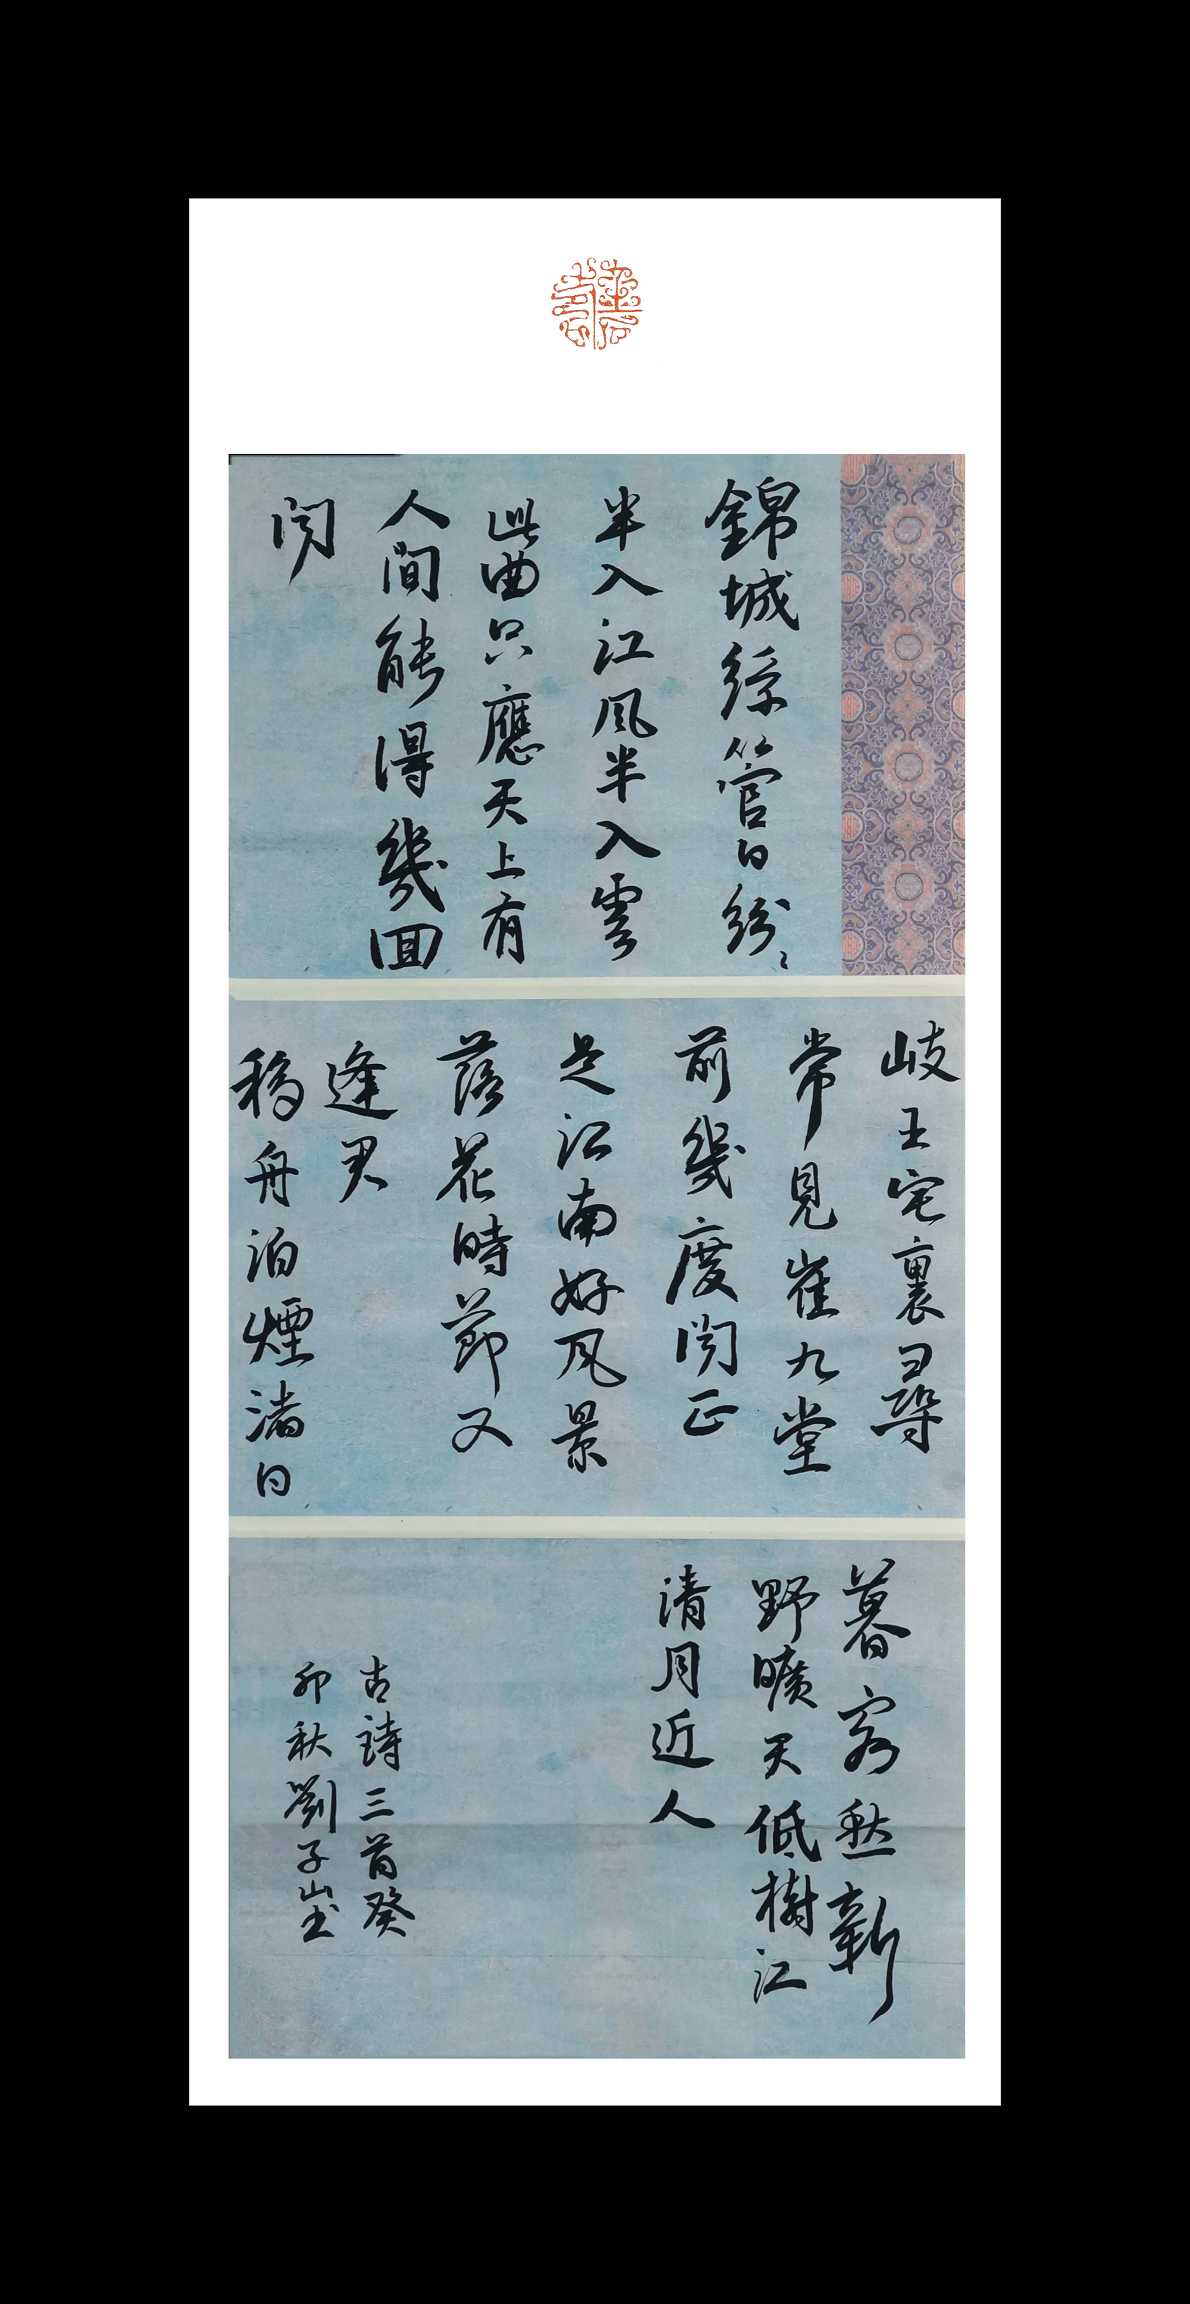 錦城絲管日紛〻
半入江風半入雲
此曲只應天上有
人間能得幾回
聞
岐王宅裏尋
常見崔九堂
前幾度聞正
是江南好風景
落花時節又
逢君
移舟泊煙渚日
暮客愁新
野曠天低樹江
清月近人
古詩三首癸
卯秋劉子山書